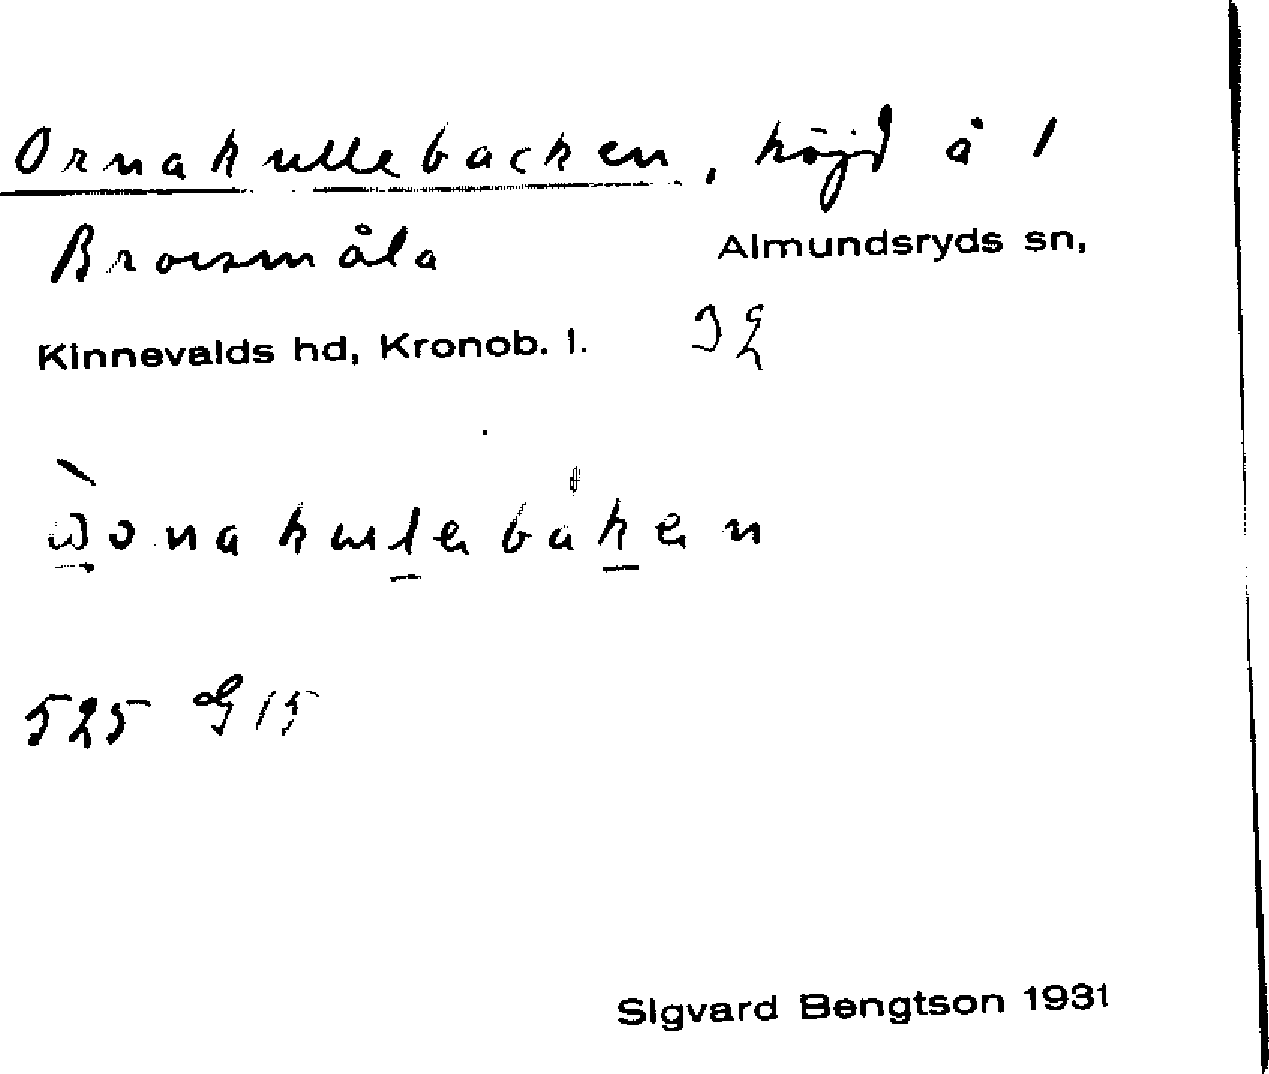 Ornakullebacken, höjd å 1
Brorsmåla Almundsryds sn,
Kinnevalds hd, Kronob. l.
525 G 15
Sigvard Bengtson 1931